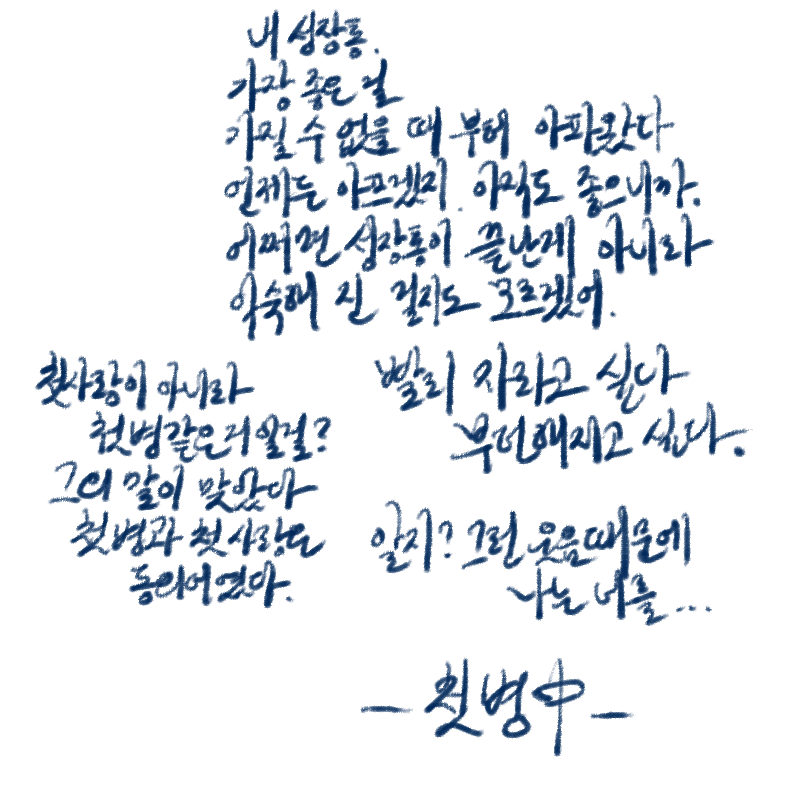 내 성장통.
가장 좋은 걸
가질 수 없을 때 부터 아파왔다
언제는 아프겠지. 아직도 좋으니까.
어쩌면 성장통이 끝난게 아니라
익숙해 진 걸지도 모르겠어.
첫사랑이 아니라
첫병같은거 일걸?
그의 말이 맞았다
첫병과 첫사랑은
동의어였다.
빨리 자라고 싶다
무던해지고 싶다.
알지? 그런 웃음때문에
나는 너를...
- 첫병中 -